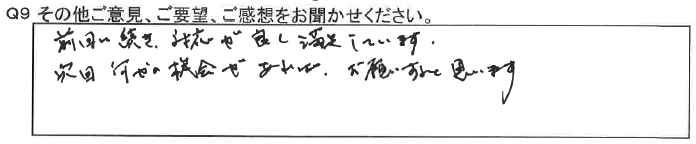 Q9 その他ご意見、ご要望、ご感想をお聞かせください。
前回に続き、対応が良く満足しています。
次回何かの機会があれば、お願いすると思います